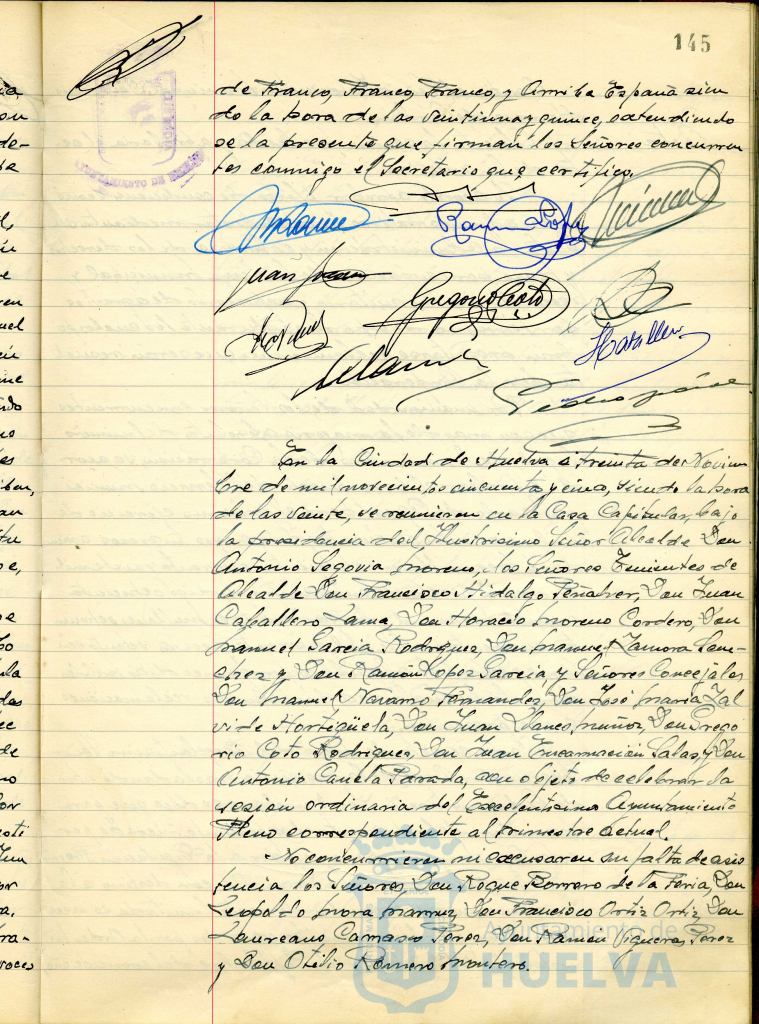 145
de Franco, Franco, Franco, y Arriba España sien
do la hora de las veintiuna y quince, extendiendo
se la presente que firman los Señores concurren
tes conmigo el Secretario que certifico.
AYUNTAMIENTO DE HUELVA
Ramón López
Juan
Gregorio Coto
H Caballero
Pedro
En la Ciudad de Huelva a treinta de Noviem
bre de mil novecientos cincuenta y cinco, siendo la hora
de las veinte, se reunieron en la Casa Capitular, bajo
la presidencia del Ilustrísimo Señor Alcalde Don
Antonio Segovia Moreno, los Señores Tenientes de
Alcalde Don Francisco Hidalgo Peñalver, Don Juan
Caballero Lama, Don Horacio Moreno Cordero, Don
Manuel García Rodríguez, Don Manuel Zamora San-
chez y Don Ramón López García, y Señores Concejales
Don Manuel Navarro Fernandez, Don José María Zal
vide Hortigüela, Don Juan Llanes Muñoz, Don Grego
rio Coto Rodriguez, Don Juan Encarnación Salas, y Don
Antonio Canela Parada, con objeto de celebrar la
sesión ordinaria del Excelentísimo Ayuntamiento
Pleno correspondiente al trimestre actual.
No concurrieron ni excusaron su falta de asis
tencia los Señores, Don Roque Borrero de la Feria, Don
Leopoldo Mora Don Francisco Ortiz Ortiz, Don
Laureano Camasco Perez, Don Ramón Vigueras Perez
y Don Otilio Romero Montero.
Ayuntamiento de
HUELVA